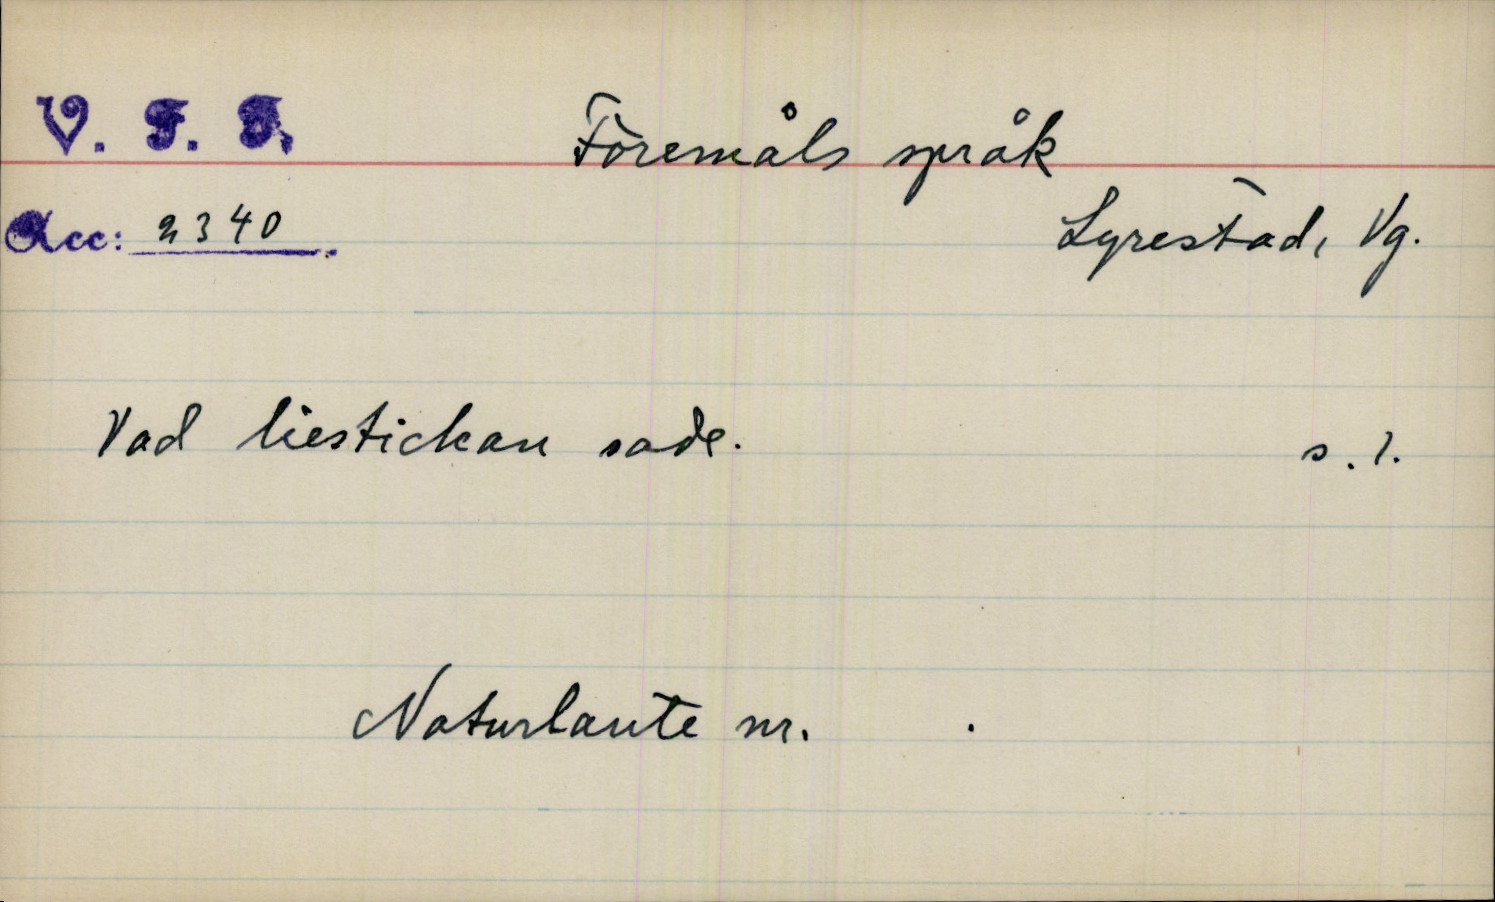 V. F. F.
Föremåls språk
Acc: 2340
Lyrestad, Vg.
Vad liestickan sade. s. 1.
Naturlaute nr. .